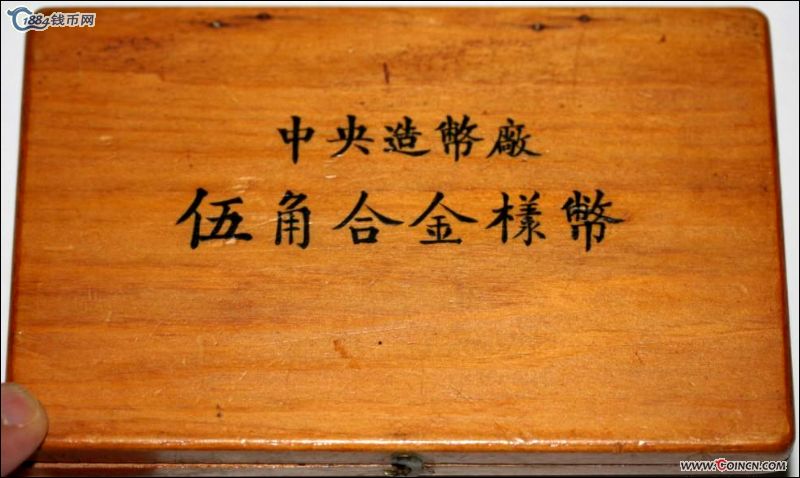 1884钱币网
中央造幣廠
伍角合金樣幣
WWW.COINCN.COM